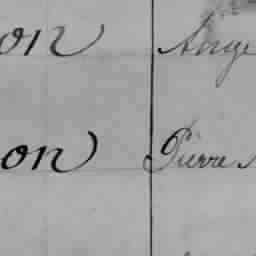 on Ange
on Pierre